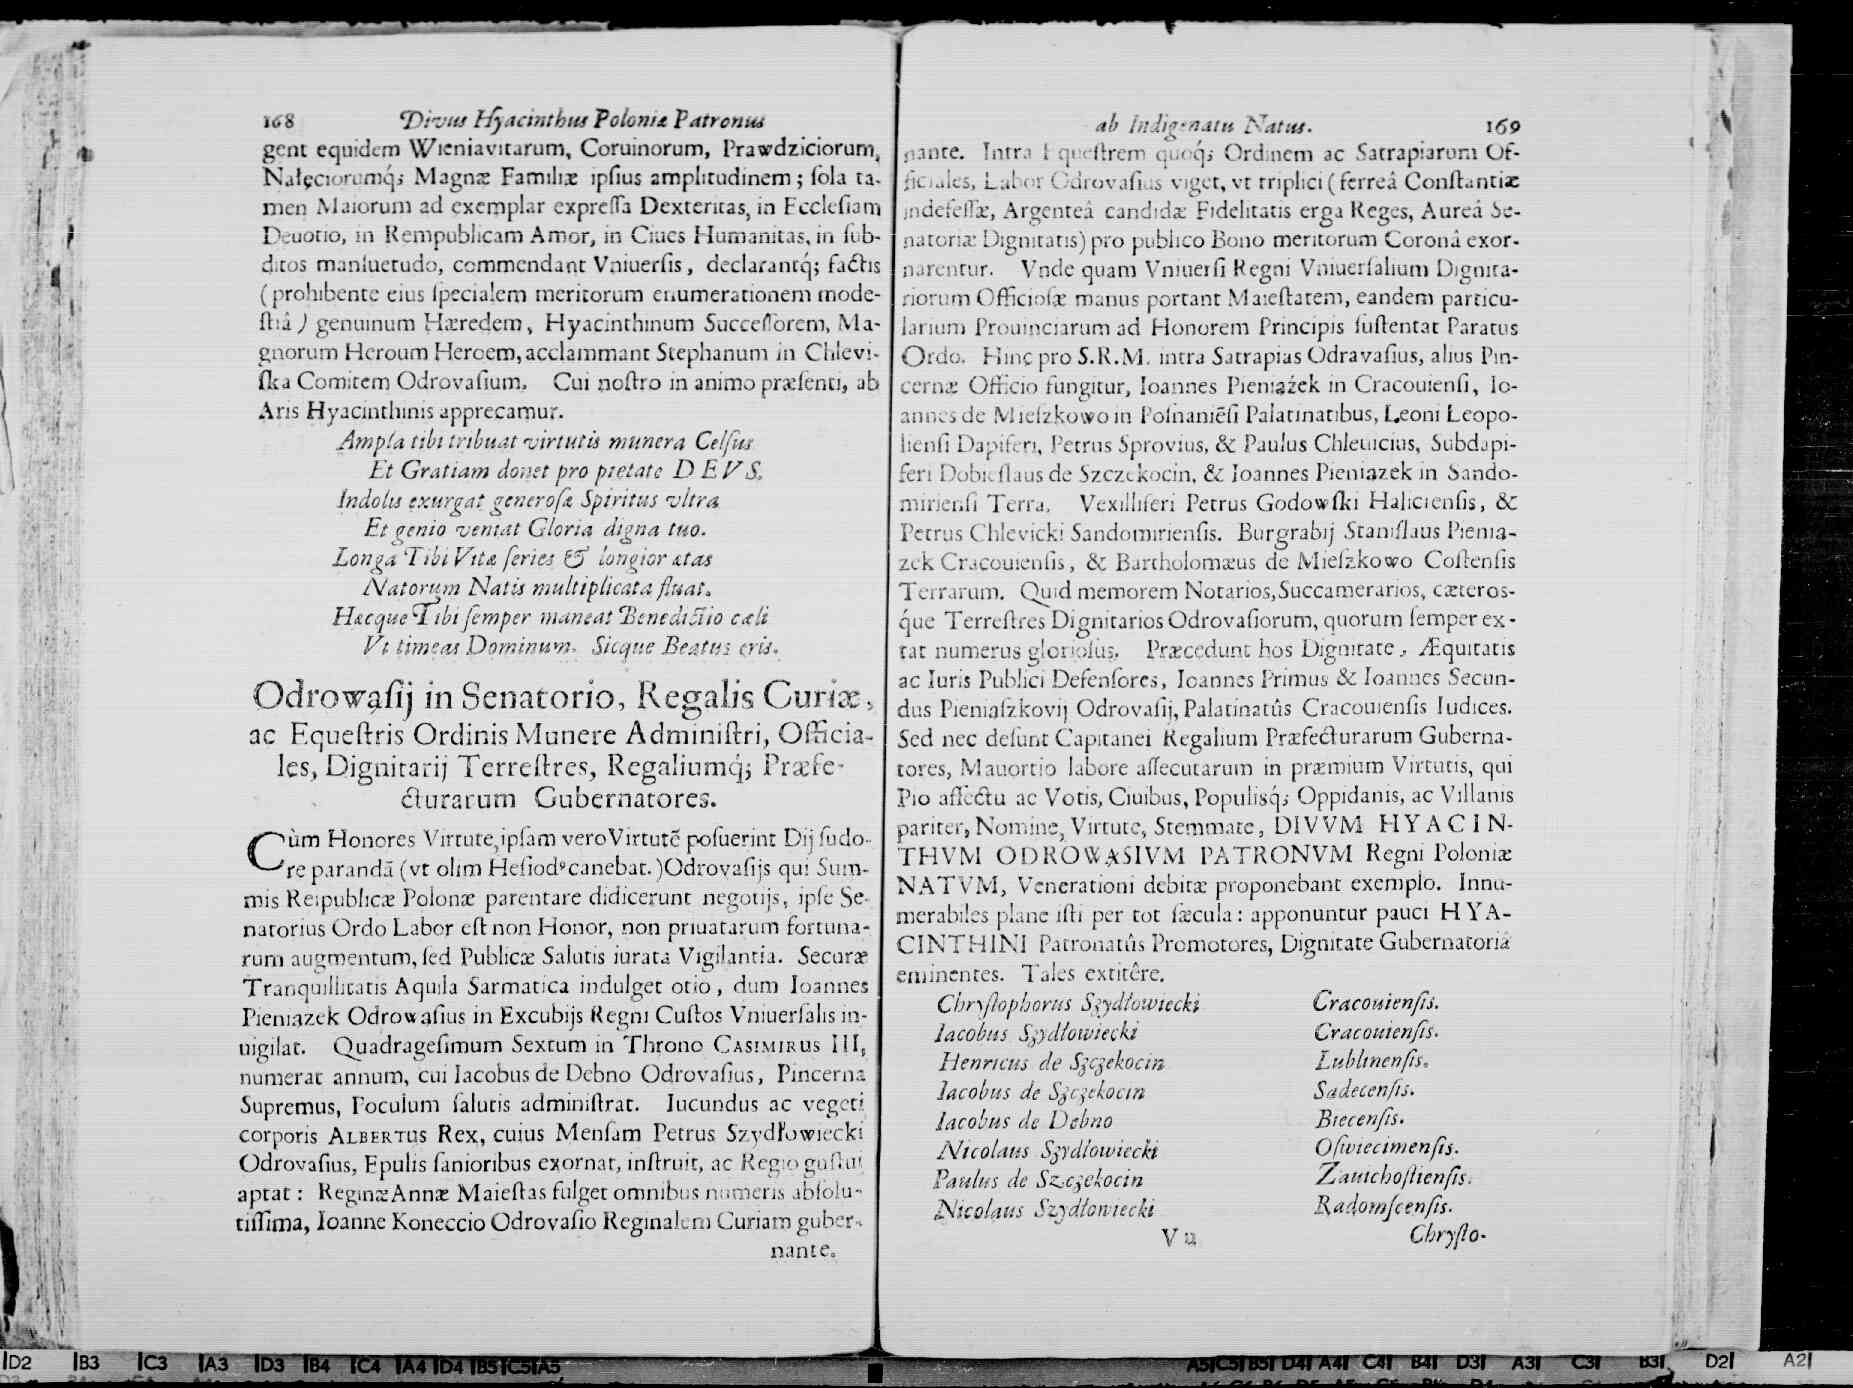 168 Divus Hyacinthus Poloniæ Patronus
gent equidem Wieniavitarum, Coruinorum, Prawdziciorum,
Nałęciorumq́; Magnæ Familiæ ipſius amplitudinem; ſola ta-
men Maiorum ad exemplar expreſſa Dexteritas, in Eccleſiam
Deuotio, in Rempublicam Amor, in Ciues Humanitas, in ſub-
ditos manſuetudo, commendant Vniuerſis, declarantq́; factis
(prohibente eius ſpecialem meritorum enumerationem mode-
ſtiâ) genuinum Hæredem, Hyacinthinum Succeſſorem, Ma-
gnorum Heroum Heroem, acclammant Stephanum in Chlevi-
ſka Comitem Odrovaſium. Cui noſtro in animo præſenti, ab
Aris Hyacinthinis apprecamur.
Ampla tibi tribuat virtutis munera Celſus
Et Gratiam donet pro pietate DEVS.
Indolis exurgat generoſæ Spiritus vltra
Et genio veniat Gloria digna tuo.
Longa Tibi Vitæ ſeries & longior ætas
Natorum Natis multiplicata fluat.
Hæcque Tibi ſemper maneat Benedictio cæli
Vt timeas Dominum. Sicque Beatus eris.
Odrowąſij in Senatorio, Regalis Curiæ,
ac Equeſtris Ordinis Munere Adminiſtri, Officia-
les, Dignitarij Terreſtres, Regaliumq́; Præfe-
cturarum Gubernatores.
Cùm Honores Virtute, ipſam vero Virtutẽ poſuerint Dij ſudo-
re parandã (vt olim Heſiodꝰ canebat.) Odrovaſijs qui Sum-
mis Reipublicæ Polonæ parentare didicerunt negotijs, ipſe Se-
natorius Ordo Labor eſt non Honor, non priuatarum fortuna-
rum augmentum, ſed Publicæ Salutis iurata Vigilantia. Securæ
Tranquillitatis Aquila Sarmatica indulget otio, dum Ioannes
Pieniązek Odrowąſius in Excubijs Regni Cuſtos Vniuerſalis in-
uigilat. Quadrageſimum Sextum in Throno CASIMIRUS III,
numerat annum, cui Iacobus de Debno Odrovaſius, Pincerna
Supremus, Poculum ſalutis adminiſtrat. Iucundus ac vegeti
corporis ALBERTUS Rex, cuius Menſam Petrus Szydłowiecki
Odrovaſius, Epulis ſanioribus exornat, inſtruit, ac Regio guſtui
aptat: Reginæ Annæ Maieſtas fulget omnibus numeris abſolu-
tiſſima, Ioanne Koneccio Odrovaſio Reginalem Curiam guber-
nante.
ab Indigenatu Natus. 169
nante. Intra Equeſtrem quoq́; Ordinem ac Satrapiarum Of-
ficiales, Labor Odrovaſius viget, vt triplici (ferreâ Conſtantiæ
indefeſſæ, Argenteâ candidæ Fidelitatis erga Reges, Aureâ Se-
natoriæ Dignitatis) pro publico Bono meritorum Coronâ exor-
narentur. Vnde quam Vniuerſi Regni Vniuerſalium Dignita-
riorum Officioſæ manus portant Maieſtatem, eandem particu-
larium Prouinciarum ad Honorem Principis ſuſtentat Paratus
Ordo. Hinc pro S.R.M. intra Satrapias Odravaſius, alius Pin-
cernæ Officio fungitur, Ioannes Pieniążek in Cracouienſi, Io-
annes de Mieſzkowo in Poſnaniẽſi Palatinatibus, Leoni Leopo-
lienſi Dapiferi, Petrus Sprovius, & Paulus Chleuicius, Subdapi-
feri Dobieſlaus de Szczekocin, & Ioannes Pieniązek in Sando-
mirienſi Terra. Vexilliferi Petrus Godowſki Halicienſis, &
Petrus Chlevicki Sandomirienſis. Burgrabij Staniſlaus Pienia-
zek Cracouienſis, & Bartholomæus de Mieſzkowo Coſtenſis
Terrarum. Quid memorem Notarios, Succamerarios, cæteros-
q́ue Terreſtres Dignitarios Odrovaſiorum, quorum ſemper ex-
tat numerus glorioſus. Præcedunt hos Dignitate, Æquitatis
ac Iuris Publici Defenſores, Ioannes Primus & Ioannes Secun-
dus Pieniąſzkovij Odrovaſij, Palatinatûs Cracouienſis Iudices.
Sed nec deſunt Capitanei Regalium Præfecturarum Guberna-
tores, Mauortio labore aſſecutarum in præmium Virtutis, qui
Pio affectu ac Votis, Ciuibus, Populisq́; Oppidanis, ac Villanis
pariter, Nomine, Virtute, Stemmate, DIVVM HYACIN-
THVM ODROWĄSIVM PATRONVM Regni Poloniæ
NATVM, Venerationi debitæ proponebant exemplo. Innu-
merabiles plane iſti per tot ſæcula: apponuntur pauci HYA-
CINTHINI Patronatûs Promotores, Dignitate Gubernatoriâ
eminentes. Tales extitêre.
Chryſtophorus Szydłowiecki Cracouienſis.
Iacobus Szydłowiecki Cracouienſis.
Henricus de Szczekocin Lublinenſis.
Iacobus de Szczekocin Sadecenſis.
Iacobus de Debno Biecenſis.
Nicolaus Szydłowiecki Oſwiecimenſis.
Paulus de Szczekocin Zauichoſtienſis.
Nicolaus Szydłowiecki Radomſcenſis.
V u Chryſto-
D2 B3 C3 A3 D3 B4 C4 A4 D4 B5 C5 A5
A5 C5 B5 D4 A4 C4 B4 D3 A3 C3 B3 D2 A2